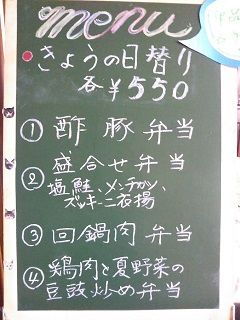 menu
きょうの日替り
各¥550
① 酢豚弁当
② 盛合せ弁当
塩鮭、メンチカツ、
ズッキーニ衣揚
③ 回鍋肉弁当
④ 鶏肉と夏野菜の
豆豉炒め弁当